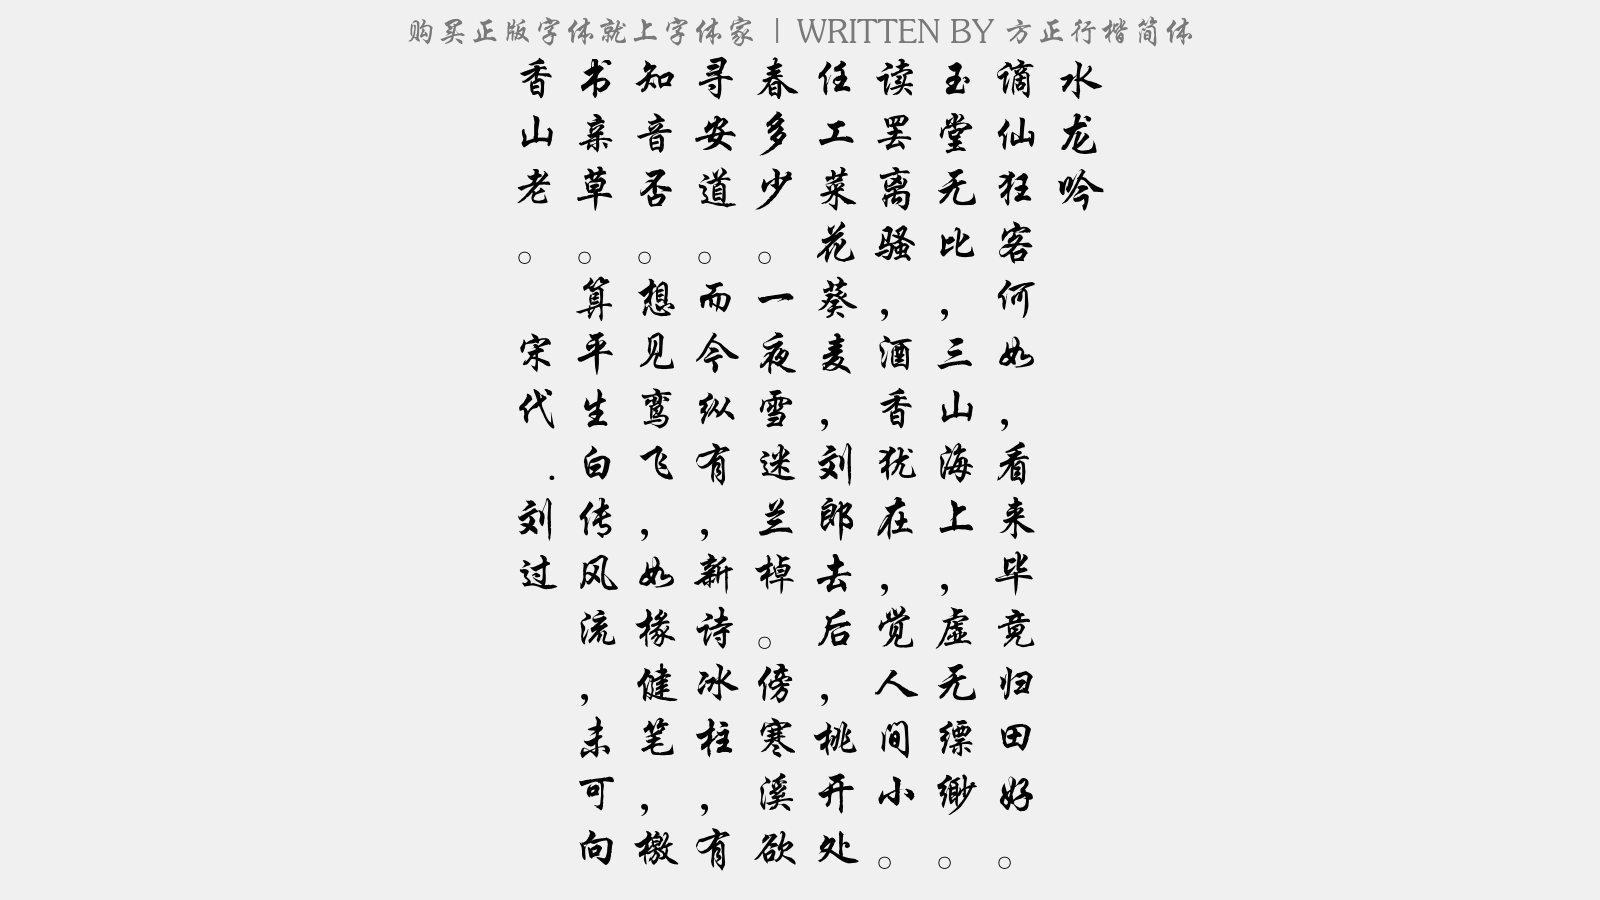 购买正版字体就上字体家 | WRITTEN BY 方正行楷简体
水龙吟
谪仙狂客何如，看来毕竟归田好。
玉堂无比，三山海上，虚无缥缈。
读罢离骚，酒香犹在，觉人间小。
任工菜花葵麦，刘郎去后，桃开处
春多少。一夜雪迷兰棹。傍寒溪欲
寻安道。而今纵有，新诗冰柱，有
知音否。想见鸾飞，如椽健笔，檄
书亲草。算平生白传风流，未可向
香山老。 宋代.刘过